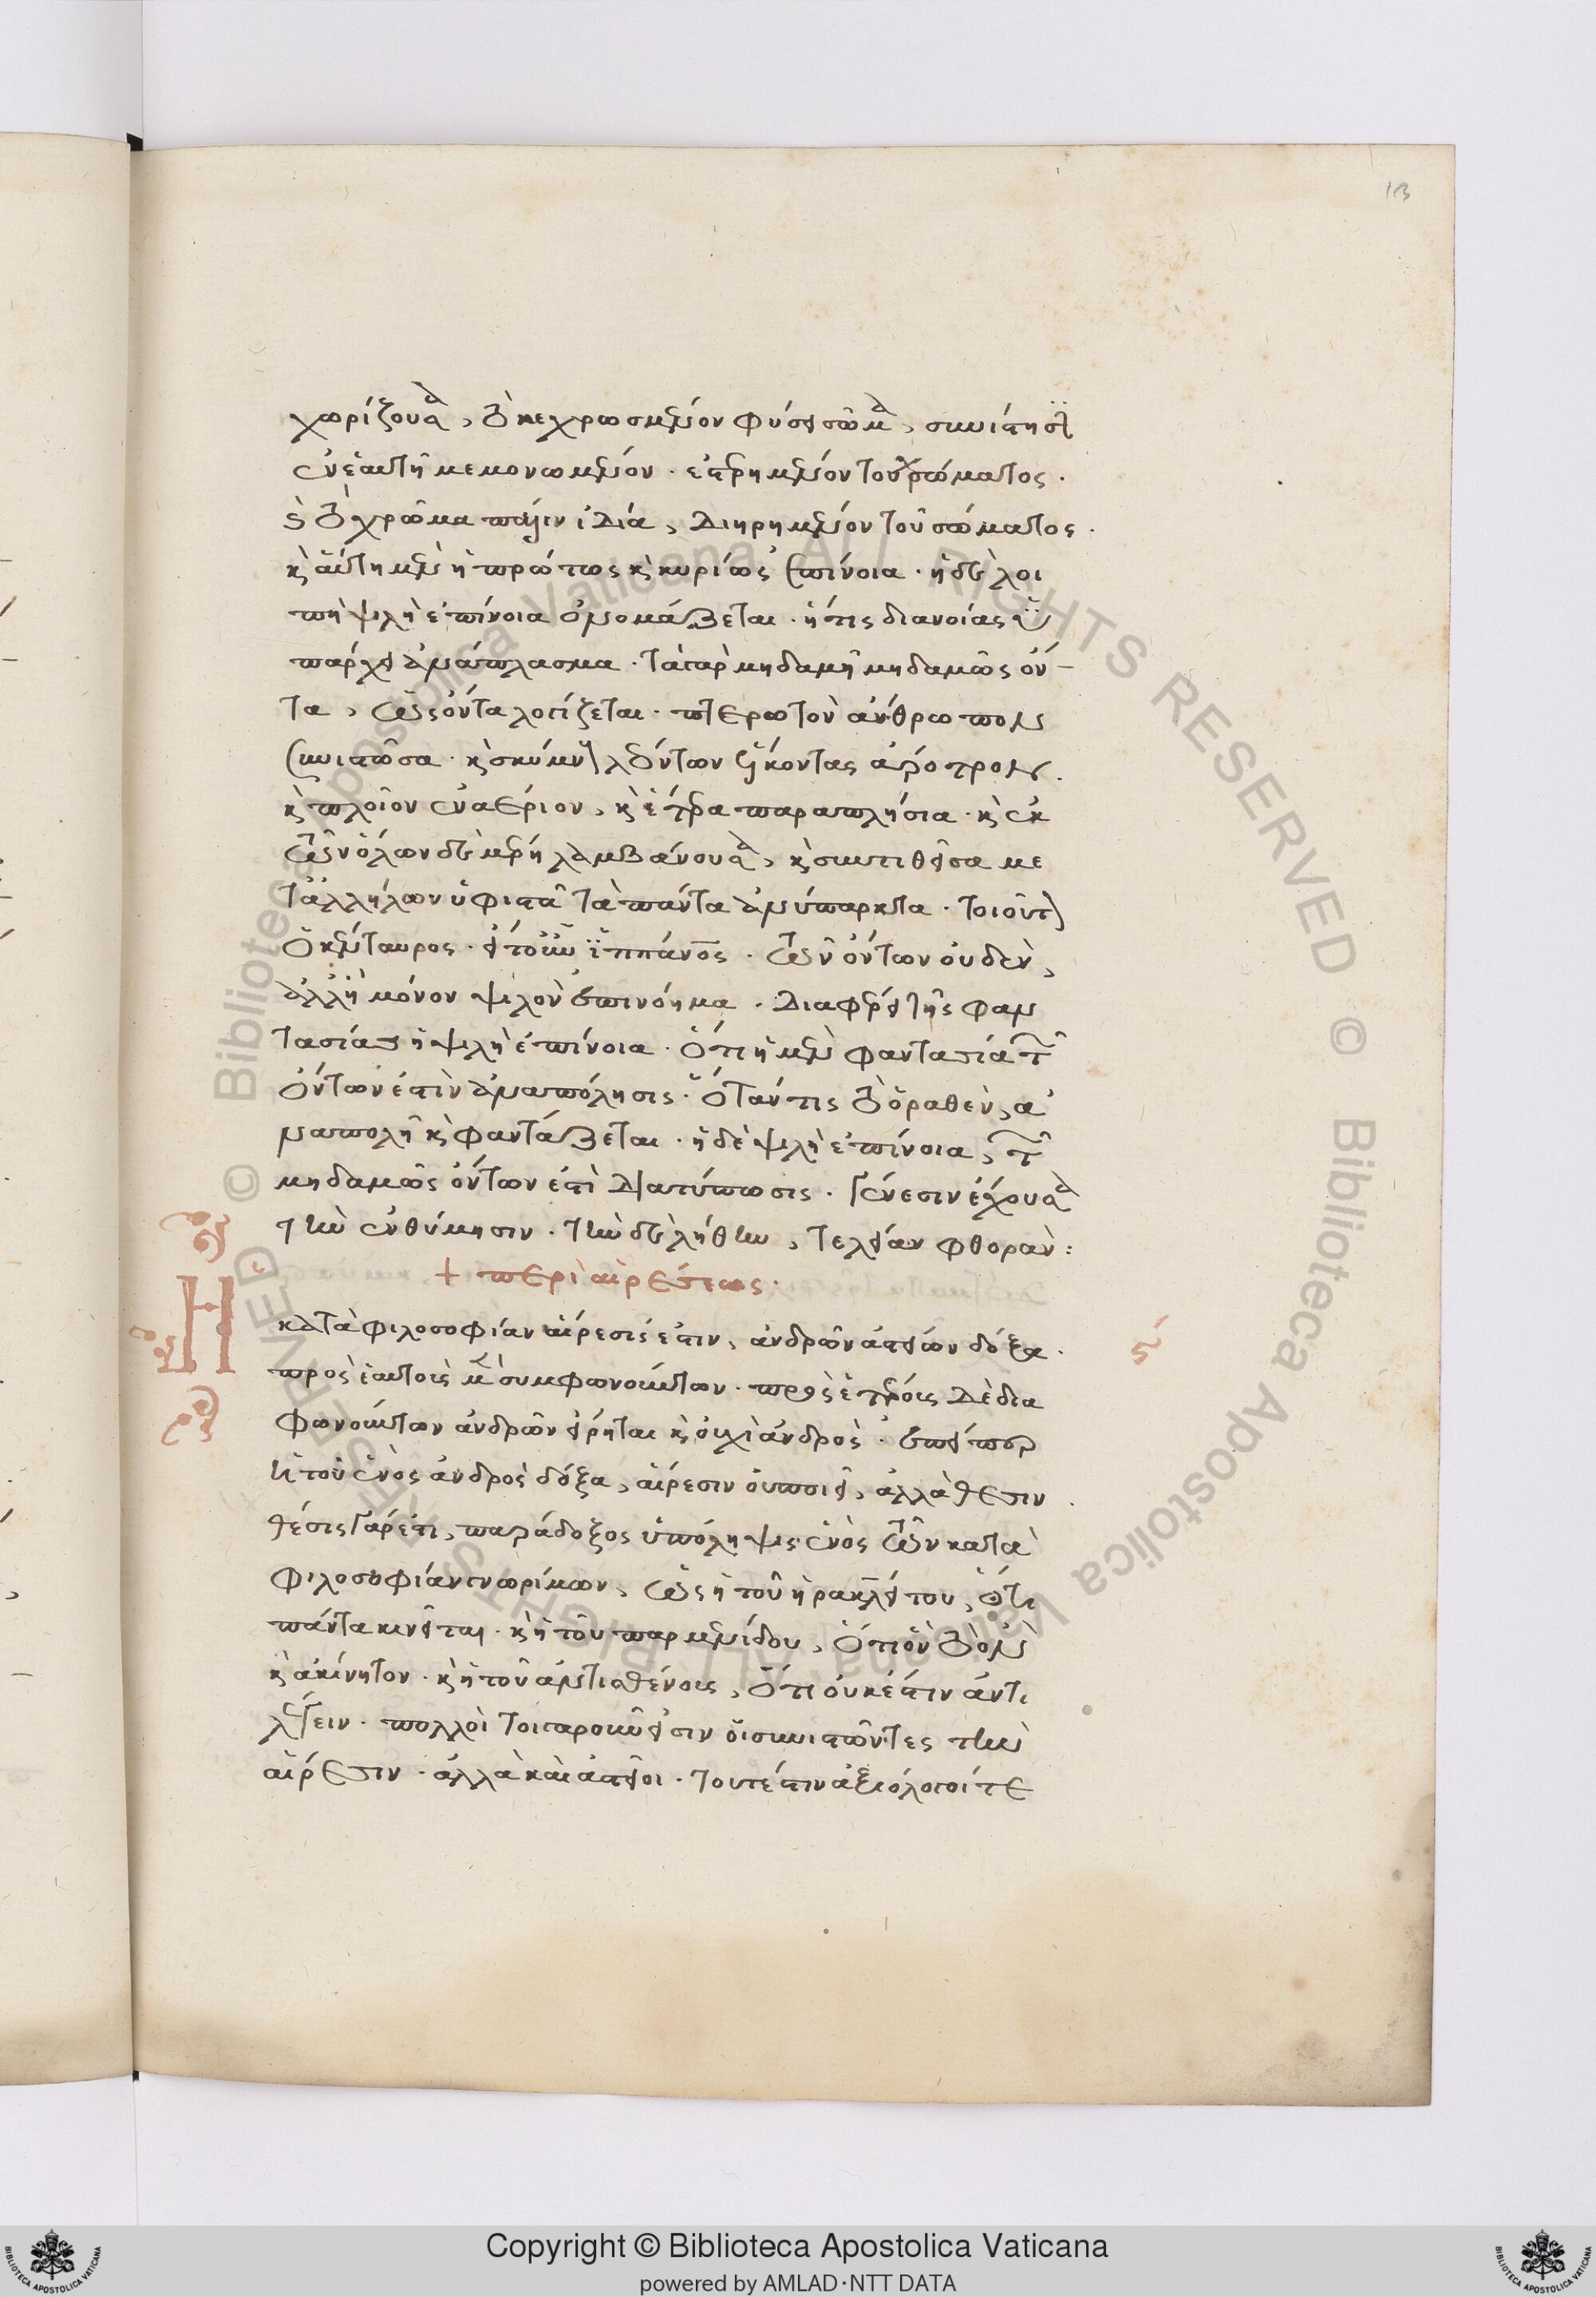 13
χωρίζουσα, τὸ κεχρωσμένον φύσει σῶμα, συνίστησι
ἐν ἑαυτῇ μεμονωμένον. ἐστερημένον τοῦ χρώματος.
ἢ τὸ χρῶμα πάλιν ἰδία, διῃρημένον τοῦ σώματος.
καὶ αὕτη μὲν ἡ πρώτως καὶ κυρίως ἐπίνοια. ἡ δὲ λοι
πὴ ψιλὴ ἐπίνοια ὀνομάζεται. ἥτις διανοίας ὑ
πάρχει ἀνάπλασμα. τὰ γὰρ μηδαμῆ μηδαμῶς ὄν-
τα, ὡς ὄντα λογίζεται. πτερωτὸν ἄνθρωπον
συνιστῶσα. καὶ σκύμνων λεόντων ἥκοντας ἄροτρον.
καὶ πλοῖον ἐναέριον, καὶ ἕτερα παραπλήσια. καὶ ἐκ
τῶν ὅλων δὲ μέρη λαμβάνουσα, καὶ συντιθεῖσα με
τ' ἀλλήλων ὑφιστᾶ τὰ πάντα ἀνύπαρκτα. τοιοῦτον
ὁ κένταυρος. εἴτουν ἱππάνος. τῶν ὄντων οὐδὲν,
ἀλλ' ἢ μόνον ψιλὸν ἐπινόημα. διαφέρει τῆς φαν
τασίας ἡ ψιλὴ ἐπίνοια. ὅτι ἡ μὲν φαντασία τῶν
ὄντων ἐστὶν ἀναπόλησις. ὅταν τις τὸ ὁραθὲν, ἀ
ναπολῆ καὶ φαντάζεται. ἡ δὲ ψιλὴ ἐπίνοια, τῶν
μηδαμῶς ὄντων ἐστὶ διατύπωσις. γένεσιν ἔχουσα
τὴν ἐνθύμησιν. τὴν δὲ λήθην, τελείαν φθοράν:
+ περὶ αἱρέσεως.
Ἡ
κατὰ φιλοσοφίαν αἵρεσίς ἐστιν, ἀνδρῶν ἀστείων δόξα.
πρὸς ἑαυτοῖς μὲν συμφωνούντων. πρὸς ἑτέροις δὲ δια
φωνούντων ἀνδρῶν εἴρηται καὶ οὐχὶ ἀνδρὸς. ἐπείπερ
ἡ τοῦ ἑνὸς ἀνδρὸς δόξα, αἵρεσιν οὐ ποιεῖ, ἀλλὰ θέσιν.
θέσις γάρ ἐστι, παράδοξος ὑπόληψις ἑνὸς τῶν κατὰ
φιλοσοφίαν γνωρίμων, ὡς ἡ τοῦ ἡρακλείτου, ὅτι
πάντα κινεῖται. καὶ ἡ τοῦ παρμενίδου, ὅτι ἓν τὸ ὂν
καὶ ἀκίνητον. καὶ ἡ τοῦ ἀντισθένους, ὅτι οὐκ ἔστιν ἀντι
λέγειν. πολλοὶ τοιγαροῦν εἰσιν οἱ συνιστῶντες τὴν
αἵρεσιν. ἀλλὰ καὶ ἀστεῖοι. τουτέστιν ἀξιόλογοί τε
Copyright © Biblioteca Apostolica Vaticana
powered by AMLAD·NTT DATA